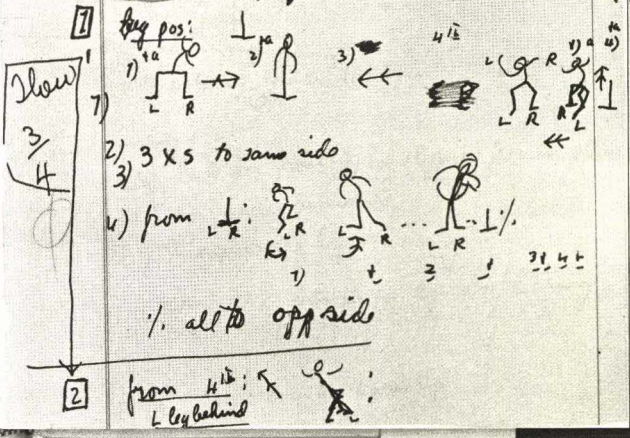 1 Beg pos: 4th
1) +a 2) +a 3) 1) a +a 4)
L R L R R L
Slow
3/4
1)
2) 3 x s to same side
3)
4) from L R : L R R L R ⊥ ·/.
1) + 2 + 3+ 4 +
·/. all to opp side
2 from 4th : :
L leg behind